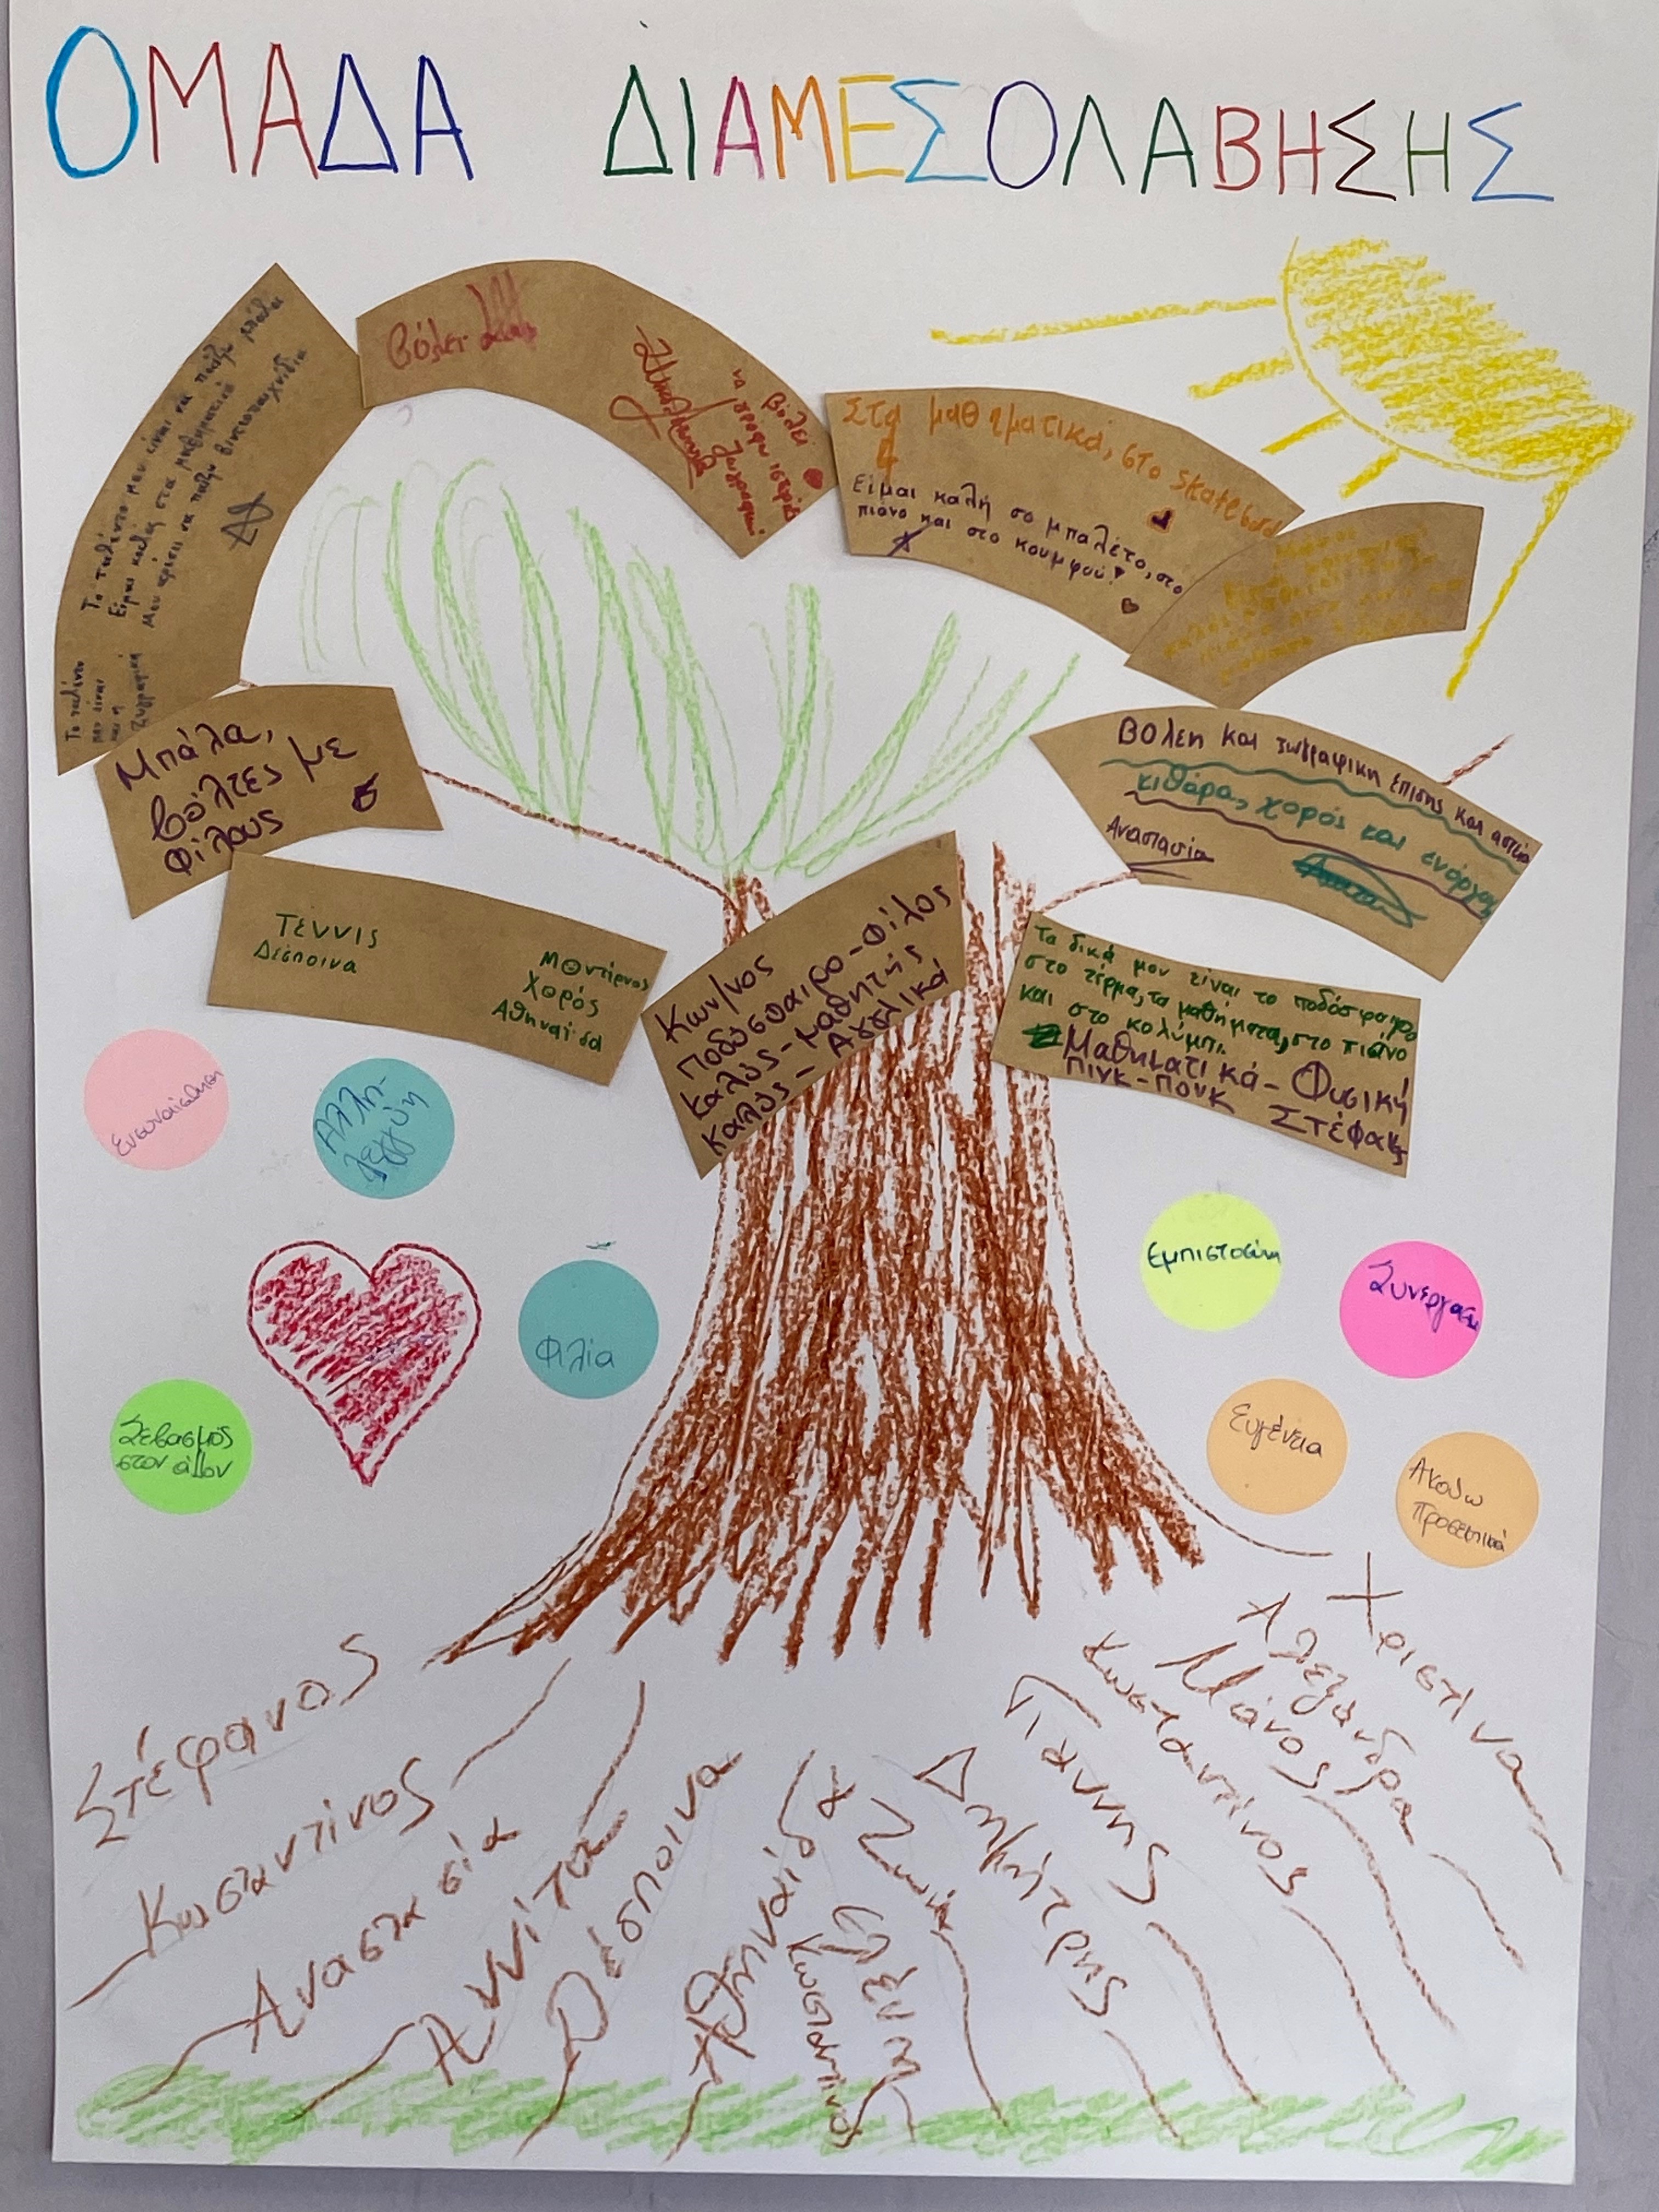 ΟΜΑΔΑ ΔΙΑΜΕΣΟΛΑΒΗΣΗΣ
Το ταλέντο μου είναι να παίζω μπάλα
Είμαι καλός στα μαθηματικά
Μου αρέσει να παίζω βιντεοπαιχνίδια
Το ταλέντο
μου είναι
και η
ζωγραφική
Βόλεϊ
βόλεϊ
να γράφω ιστορίες
ζωγραφική
Στα μαθηματικά, στο skateboard
Είμαι καλή σο μπαλέτο, στο
πιάνο και στο κουμφού!
Μπάλα,
βόλτες με
φίλους
Βόλεη και ζωγραφικη επισης και αστεία
κιθάρα, χορός και ενόργανη
Αναστασία
Τέννις
Δέσποινα
Μοντέρνος
χορός
Αθηναΐδα
Κων/νος
ποδόσφαιρο-φίλος
καλός-μαθητής
καλός-Αγγλικά
Τα δικά μου είναι το ποδόσφαιρο
στο τέρμα, τα μαθήματα, στο πιάνο
και στο κολύμπι.
Μαθηματικά-Φυσική
Πινκ-Πονκ Στέφανος
Ενσυναίσθηση
Αλλη-
λεγγύη
Φιλία
Σεβασμός
στον άλλον
Εμπιστοσύνη
Συνεργασία
Ευγένεια
Ακούω
Προσεκτικά
Στέφανος
Κωσταντίνος
Αναστασία
Αννίτα
Δέσποινα
Αθηναΐδα
Κωσταντίνος
Ελένη
Ζωή
Δημήτρης
Γιάννης
Κωσταντίνος
Μάνος
Αλεξάνδρα
Χριστίνα